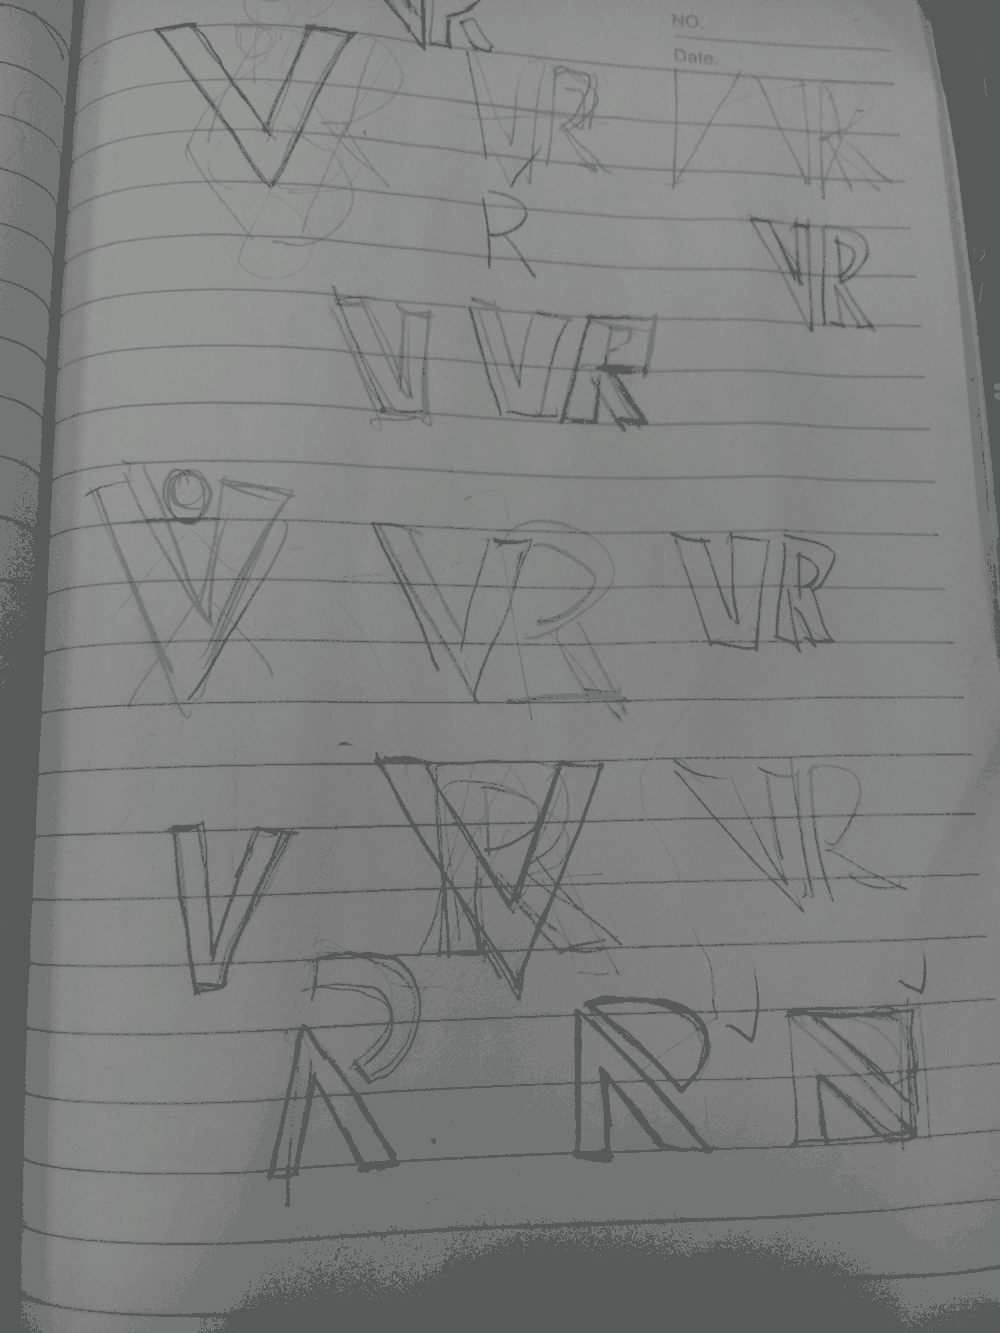 VR
NO.
Date.
V R VR V VR
R
VR
V VR
V VR VR
V VR VR
R R